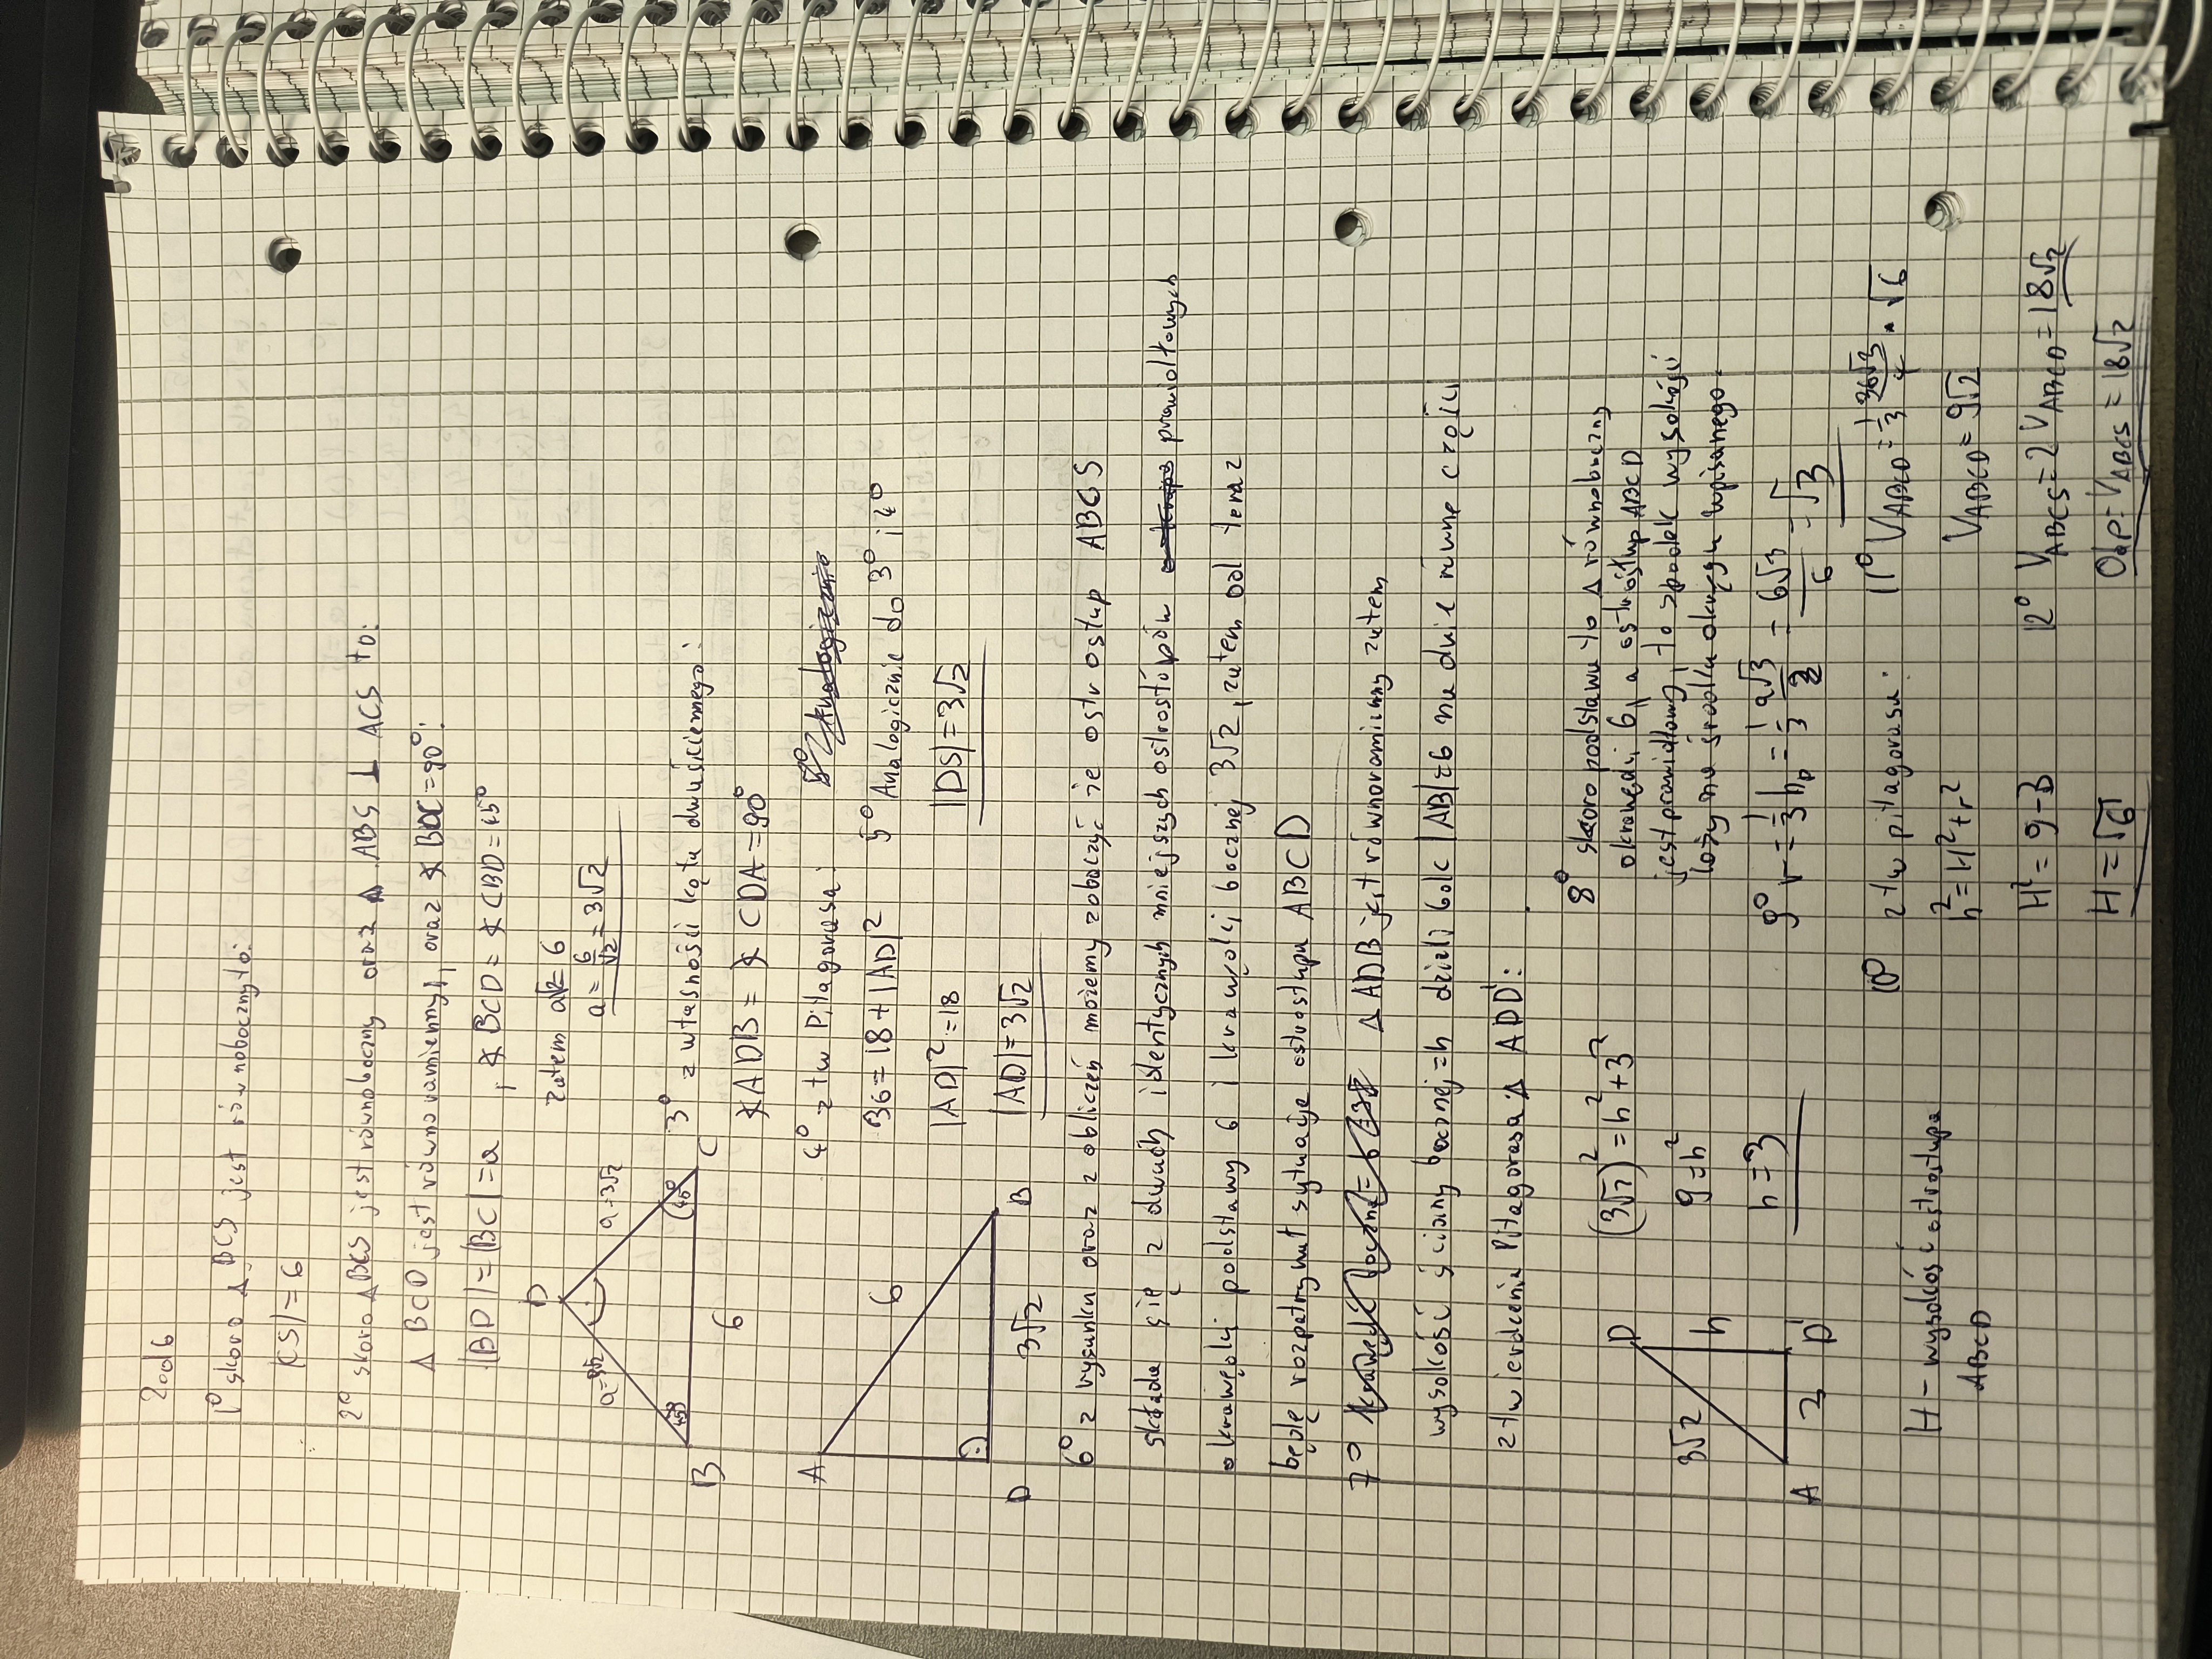 Zad 6
1° skoro Δ BCS jest równoboczny to:
|CS| = 6
2° skoro Δ BCS jest równoboczny oraz Δ ABS ⊥ ACS to:
Δ BCD jest równoramienny, oraz ∢ BDC = 90°:
|BD| = |BC| = a , ∢ BCD = ∢ CBD = 45°
zatem a√2 = 6
a = 6/√2 = 3√2
D
a=3√2
a=3√2
45°
45°
B
C
6
3° z własności kąta dwuściennego:
∢ ADB = ∢ CDA = 90°
4° z tw Pitagorasa:
36 = 18 + |AD|²
|AD|² = 18
|AD| = 3√2
A
6
D
3√2
B
5° Analogicznie do 3° i 4°
|DS| = 3√2
6° z rysunku oraz z obliczeń możemy zobaczyć że ostrosłup ABCS
składa się z dwóch identycznych mniejszych ostrosłupów prawidłowych
o krawędzi podstawy 6 i krawędzi bocznej 3√2, zatem od teraz
będę rozpatrywał sytuację ostrosłupa ABCD
7° Δ ADB jest równoramienny zatem
wysokość ściany bocznej = h dzieli bok |AB| = 6 na dwie równe części
z twierdzenia Pitagorasa Δ ADD':
D
3√2
h
A
3
D'
(3√2)² = h² + 3²
9 = h²
h = 3
8° skoro podstawa to Δ równoboczny
o krawędzi 6, a ostrosłup ABCD
jest prawidłowy, to spodek wysokości
leży na środku okręgu wpisanego.
9° r = 1/3 hp = 1/3 a√3/2 = 6√3/6 = √3
H - wysokość ostrosłupa
ABCD
10° z tw pitagorasa:
h² = H² + r²
H² = 9 - 3
H = √6
11° V ABCD = 1/3 36√3/4 · √6
V ABCD = 9√2
12° V ABCS = 2 V ABCD = 18√2
Odp: V ABCS = 18√2